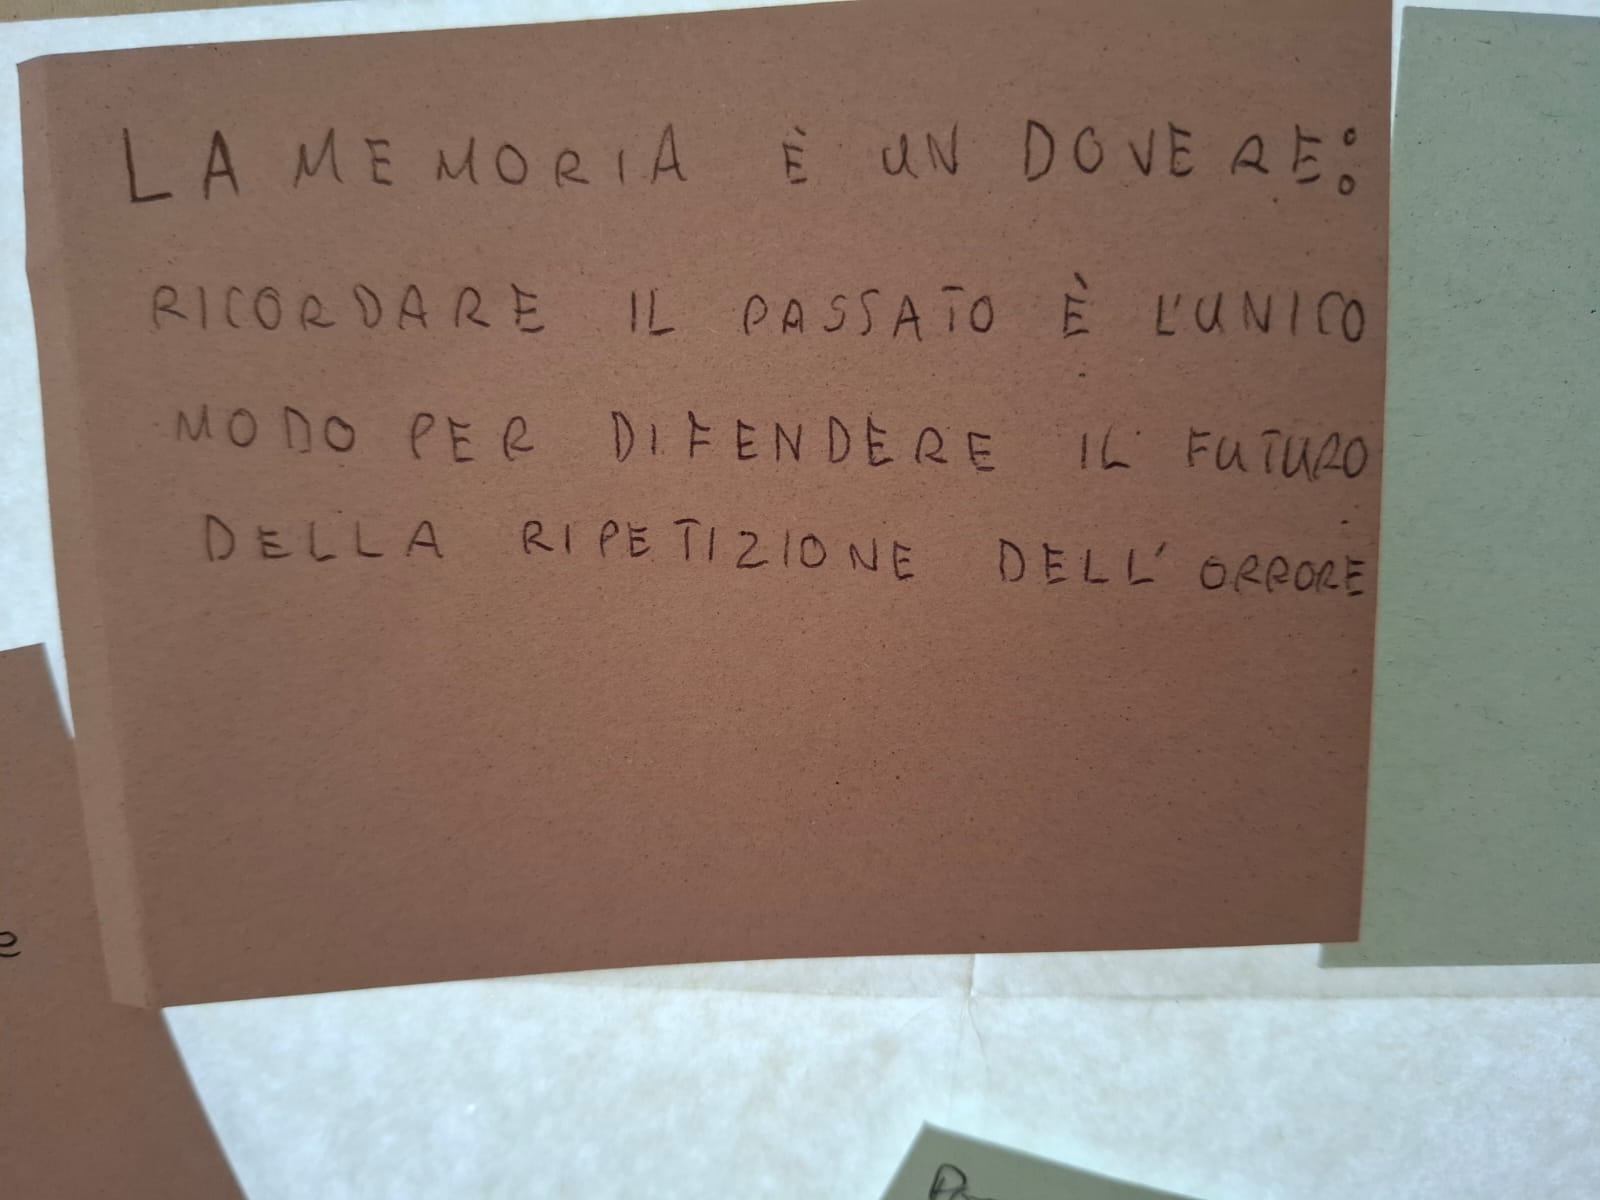 LA MEMORIA È UN DOVERE:
RICORDARE IL PASSATO È L'UNICO
MODO PER DIFENDERE IL FUTURO
DELLA RIPETIZIONE DELL'ORRORE
e